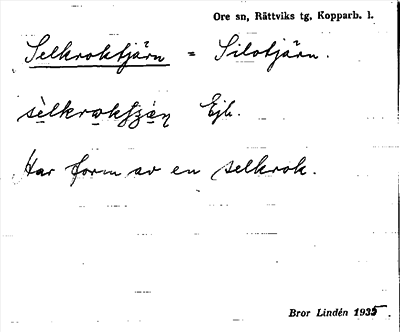 Ore sn, Rättviks tg, Kopparb. l.
Selkroktjärn = Silotjärn.
sèlkrωkʃʒä̀n Ejb.
Har form av en selkrok.
Bror Lindén 1935